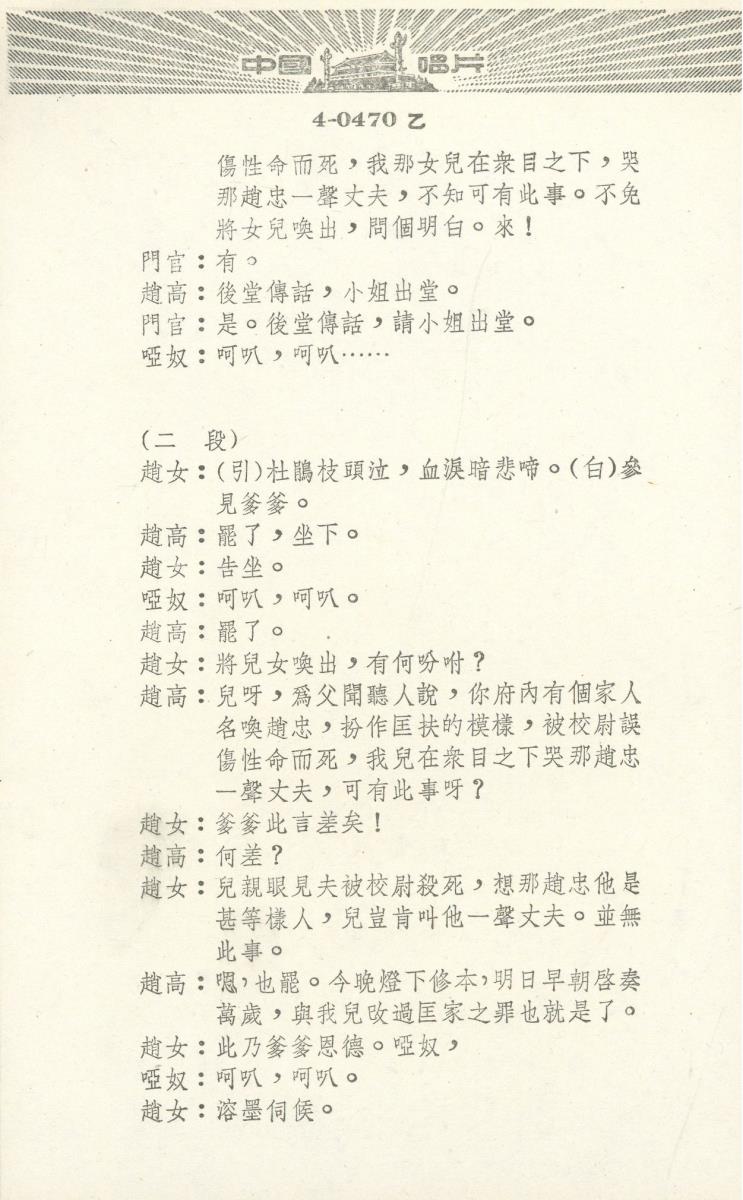 中国唱片
4-0470 乙
傷性命而死，我那女兒在衆目之下，哭
那趙忠一聲丈夫，不知可有此事。不免
將女兒喚出，問個明白。來！
門官：有。
趙高：後堂傳話，小姐出堂。
門官：是。後堂傳話，請小姐出堂。
啞奴：呵叭，呵叭……
(二　段)
趙女：(引)杜鵑枝頭泣，血淚暗悲啼。(白)參
見爹爹。
趙高：罷了，坐下。
趙女：告坐。
啞奴：呵叭，呵叭。
趙高：罷了。
趙女：將兒女喚出，有何吩咐？
趙高：兒呀，爲父聞聽人說，你府內有個家人
名喚趙忠，扮作匡扶的模樣，被校尉誤
傷性命而死，我兒在衆目之下哭那趙忠
一聲丈夫，可有此事呀？
趙女：爹爹此言差矣！
趙高：何差？
趙女：兒親眼見夫被校尉殺死，想那趙忠他是
甚等樣人，兒豈肯叫他一聲丈夫。並無
此事。
趙高：嗯，也罷。今晚燈下修本，明日早朝啓奏
萬歲，與我兒改過匡家之罪也就是了。
趙女：此乃爹爹恩德。啞奴，
啞奴：呵叭，呵叭。
趙女：溶墨伺候。